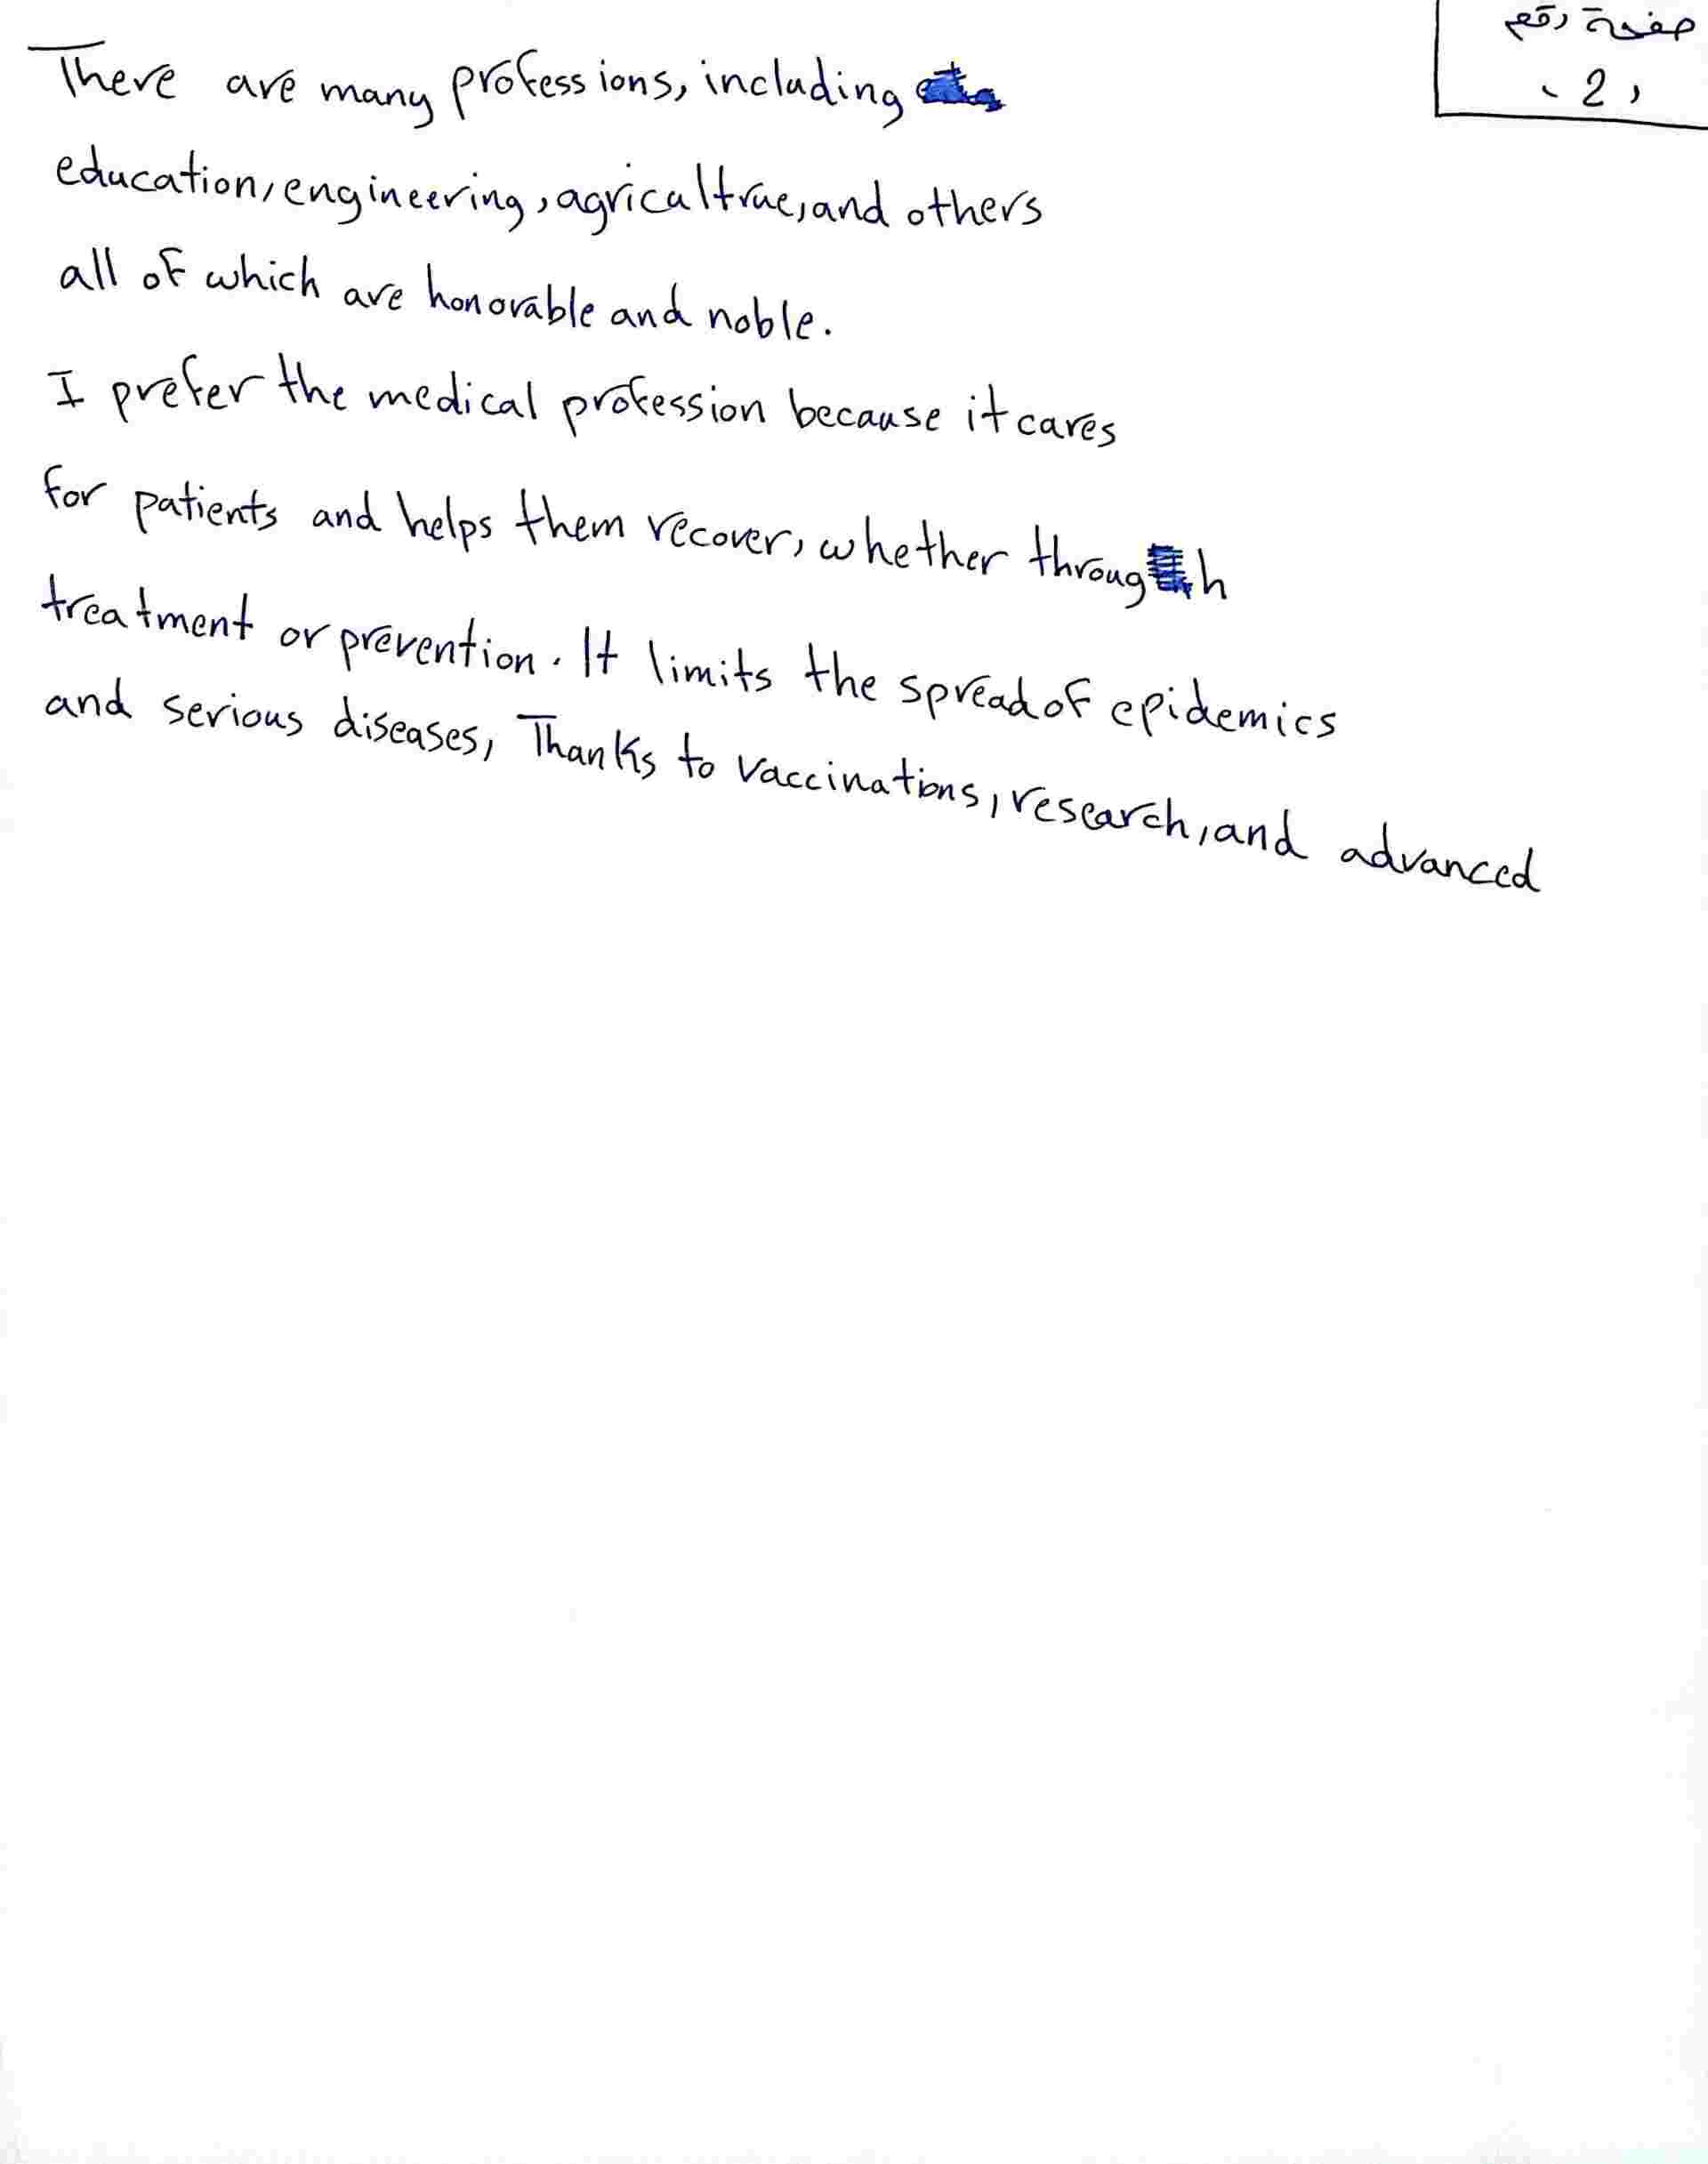 صفحة رقم
(2)
There are many professions, including
education, engineering, agricaltrue, and others
all of which are honorable and noble.
I prefer the medical profession because it cares
for patients and helps them recover, whether through
treatment or prevention. It limits the spread of epidemics
and serious diseases, Thanks to vaccinations, research, and advanced